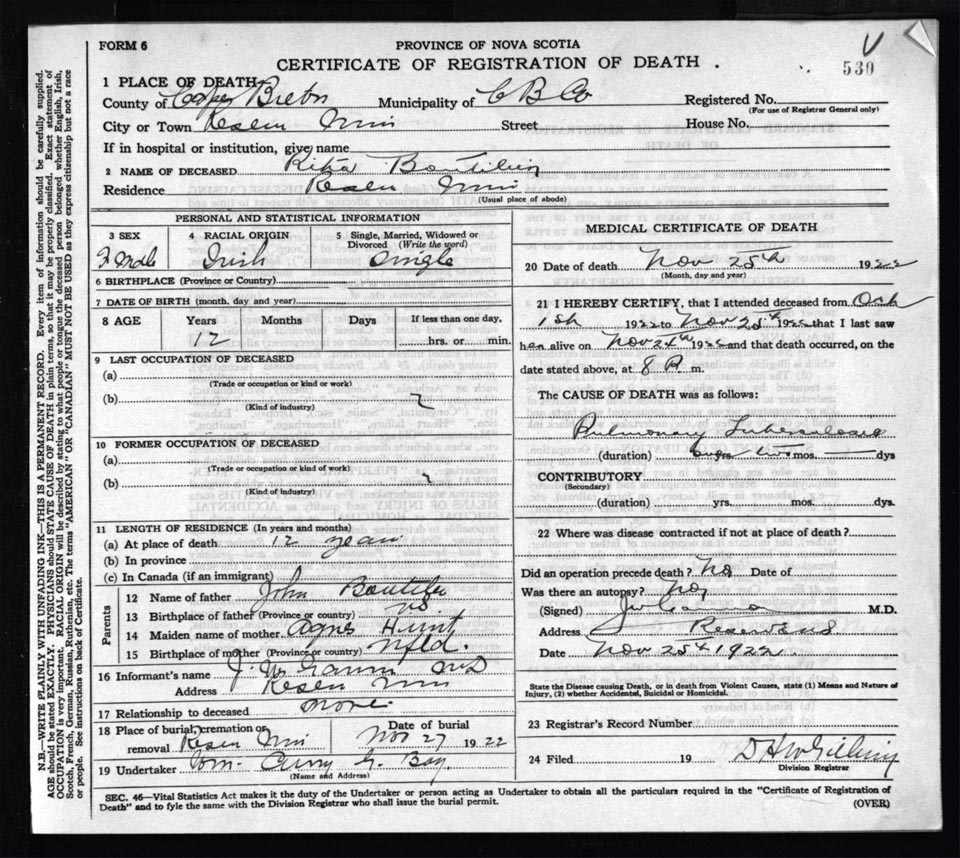 FORM 6
PROVINCE OF NOVA SCOTIA
CERTIFICATE OF REGISTRATION OF DEATH .
V
530
1 PLACE OF DEATH
County of Cape Breton Municipality of C B Co Registered No.
(For use of Registrar General only)
City or Town Street House No.
If in hospital or institution, give name
2 NAME OF DECEASED Rita
Residence
(Usual place of abode)
PERSONAL AND STATISTICAL INFORMATION
3 SEX 4 RACIAL ORIGIN 5 Single, Married, Widowed or
Divorced (Write the word)
Irish Single
6 BIRTHPLACE (Province or Country)
7 DATE OF BIRTH (month, day and year)
8 AGE Years Months Days If less than one day,
12 hrs. or min.
9 LAST OCCUPATION OF DECEASED
(a)
(Trade or occupation or kind or work)
(b)
(Kind of industry)
10 FORMER OCCUPATION OF DECEASED
(a)
(Trade or occupation or kind or work)
(b)
(Kind of industry)
11 LENGTH OF RESIDENCE (In years and months)
(a) At place of death 12 years
(b) In province
(c) In Canada (if an immigrant)
Parents
12 Name of father John
13 Birthplace of father (Province or country) NS
14 Maiden name of mother Agnes Hunt
15 Birthplace of mother (Province or country) Nfld.
16 Informant's name MD
Address
17 Relationship to deceased none
18 Place of burial, cremation or Date of burial
removal Nov 27 1922
19 Undertaker Wm. Curry G. Bay
(Name and Address)
MEDICAL CERTIFICATE OF DEATH
20 Date of death Nov 25th 1922
(Month, day and year)
21 I HEREBY CERTIFY, that I attended deceased from Oct
1st 1922 to Nov 25th 1922 that I last saw
her alive on Nov 24th 1922 and that death occurred, on the
date stated above, at 8 P. m.
The CAUSE OF DEATH was as follows:
Pulmonary Tuberculosis
(duration) yrs. two mos. dys
CONTRIBUTORY
(Secondary)
(duration) yrs. mos. dys.
22 Where was disease contracted if not at place of death?
Did an operation precede death? No Date of
Was there an autopsy? No
(Signed) M.D.
Address Reserve
Date Nov 25th 1922
State the Disease causing Death, or in death from Violent Causes, state (1) Means and Nature of
Injury, (2) whether Accidental, Suicidal or Homicidal.
23 Registrar's Record Number
24 Filed 19
Division Registrar
SEC. 46—Vital Statistics Act makes it the duty of the Undertaker or person acting as Undertaker to obtain all the particulars required in the "Certificate of Registration of
Death" and to fyle the same with the Division Registrar who shall issue the burial permit.
(OVER)
N.B.—WRITE PLAINLY WITH UNFADING INK—THIS IS A PERMANENT RECORD. Every item of information should be carefully supplied.
AGE should be stated EXACTLY. PHYSICIANS should STATE CAUSE OF DEATH in plain terms, so that it may be properly classified. Exact statement of
OCCUPATION is very important. RACIAL ORIGIN will be described by stating to what people or tongue the deceased person belonged whether English, Irish,
Scotch, French, German, Russian, Ruthenian, etc. The terms "AMERICAN" OR "CANADIAN" MUST NOT BE USED as they express citizenship but not a race
or people. See instructions on back of Certificate.